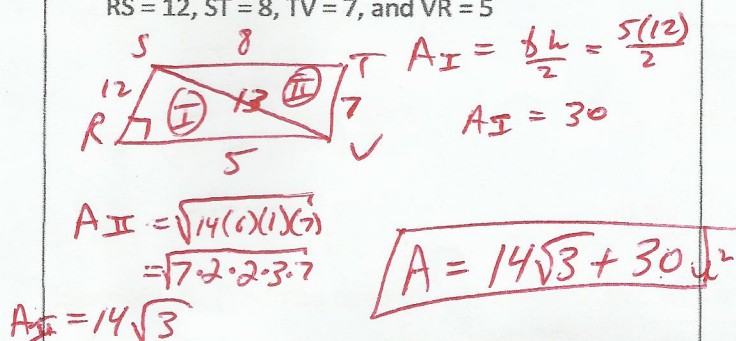 RS = 12, ST = 8, TV = 7, and VR = 5
S 8 T
12 I 13 II 7
R 5 V
A_I = bh/2 = 5(12)/2
A_I = 30
A_II = √14(6)(1)(7)
= √7·2·2·3·7
A_II = 14√3
A = 14√3 + 30 u²